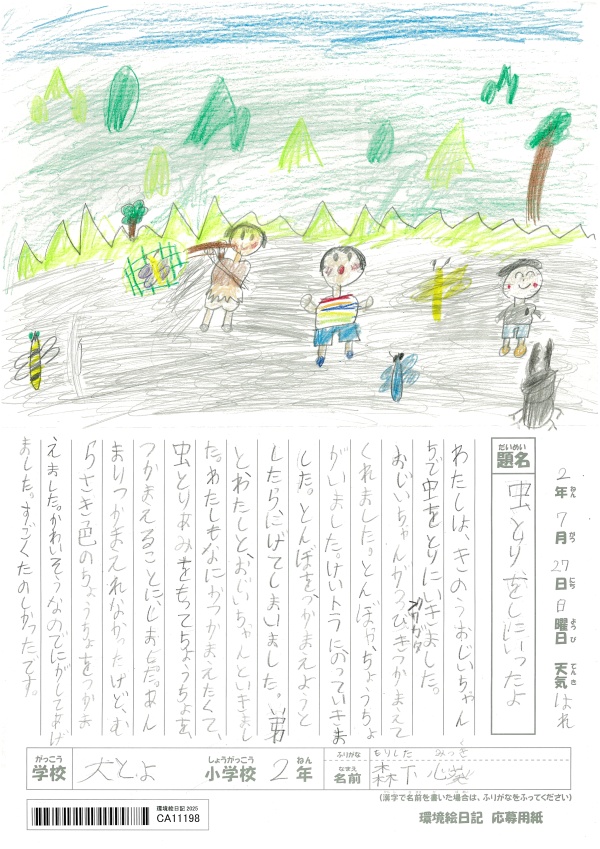 2年 7月 27日 日曜日 天気 はれ
ねん がつ にち ようび てんき
だいめい
題名 虫とりをしにいったよ
わたしは、きのうおじいちゃん
ちで虫をとりにいきました。
おじいちゃんがクワガタ一ぴきつかまえて
くれました。とんぼや、ちょうちょ
がいました。けいトラにのっていきま
した。とんぼをつかまえようと
したら、にげてしまいました。弟
とわたしと、おじいちゃんといきまし
た。わたしもなにかつかまえたくて、
虫とりあみをもってちょうちょを、
つかまえることに、しました。あん
まりつかまえれなかったけど、む
らさき色のちょうちょをつかま
えました。かわいそうなのでにがしてあげ
ました。すごくたのしかったです。
がっこう しょうがっこう ねん ふりがな もりした みつき
学校 大とよ 小学校 2年 なまえ 名前 森下 心
(漢字で名前を書いた場合は、ふりがなをふってください)
環境絵日記 2025
CA11198
環境絵日記 応募用紙